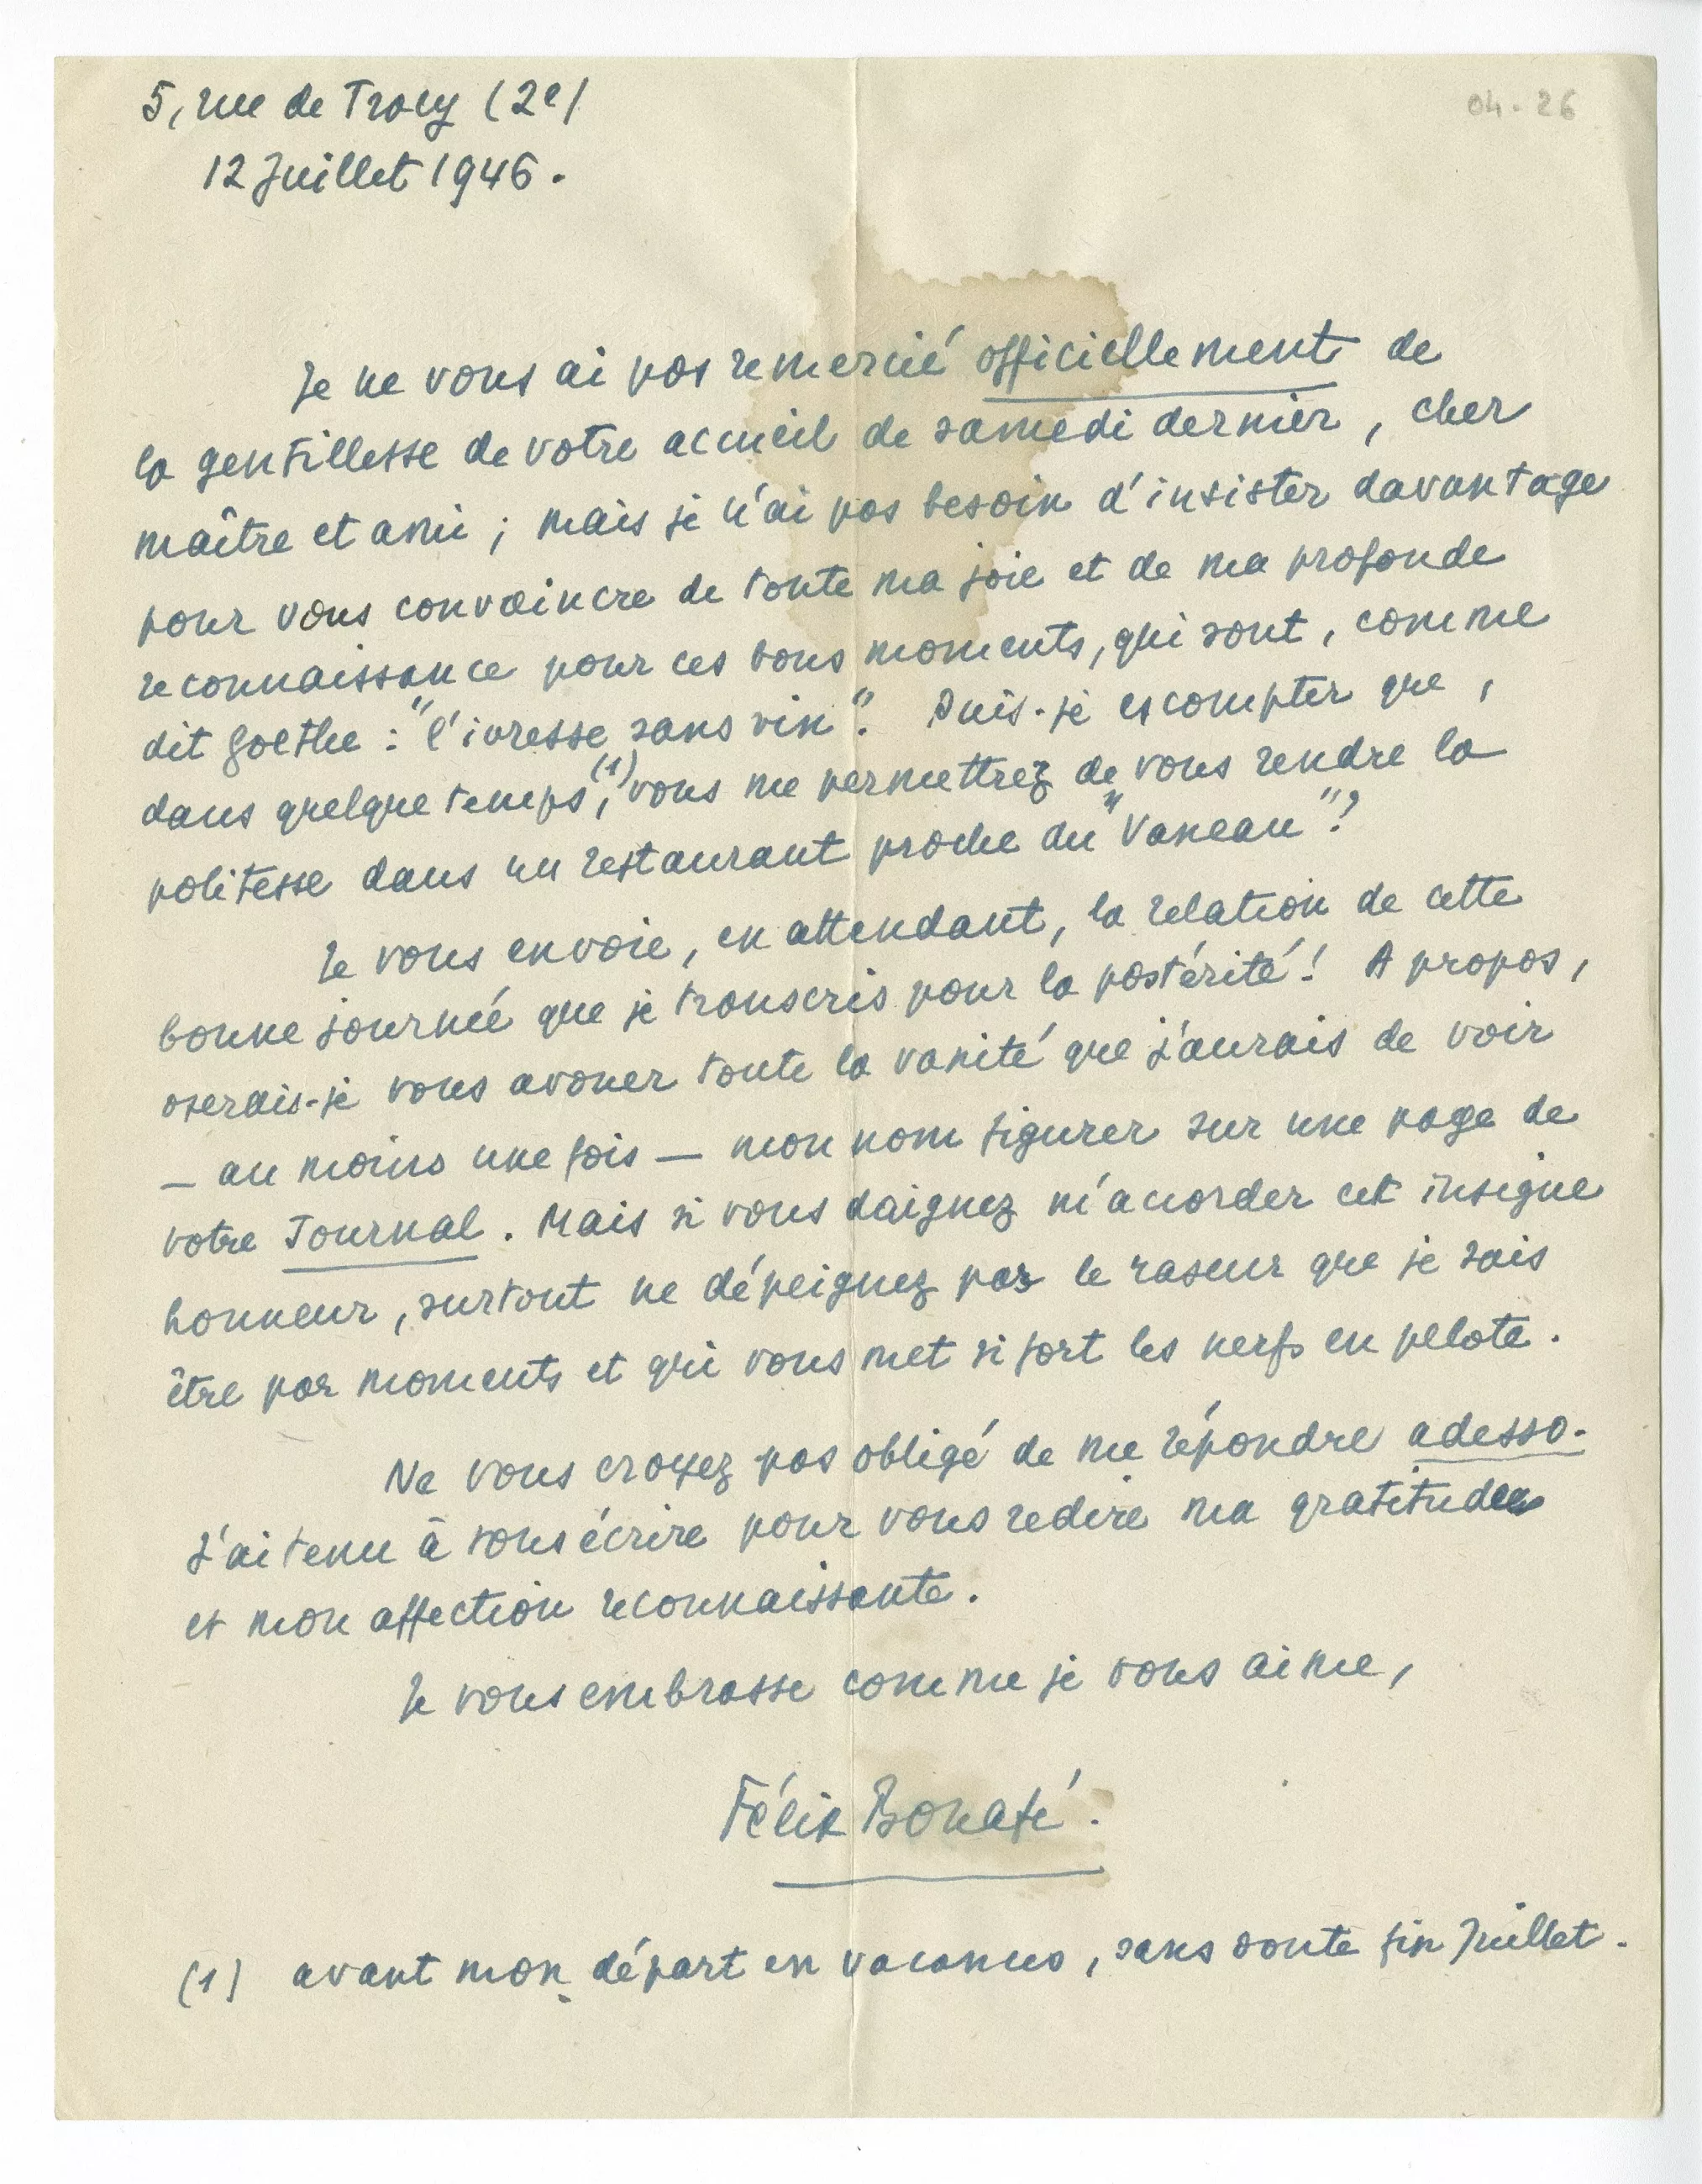 04-26
5, rue de Tracy (2e)
12 Juillet 1946.
Je ne vous ai pas remercié officiellement de
la gentillesse de votre accueil de samedi dernier, cher
maître et ami ; mais je n'ai pas besoin d'insister davantage
pour vous convaincre de toute ma joie et de ma profonde
reconnaissance pour ces bons moments, qui sont, comme
dit Goethe : "l'ivresse sans vin". Puis-je escompter que,
dans quelque temps,(1) vous me permettrez de vous rendre la
politesse dans un restaurant proche du "Vaneau"?
Je vous envoie, en attendant, la relation de cette
bonne journée que je transcris pour la postérité! A propos,
oserais-je vous avouer toute la vanité que j'aurais de voir
— au moins une fois — mon nom figurer sur une page de
votre Journal. Mais si vous daignez m'accorder cet insigne
honneur, surtout ne dépeignez pas le raseur que je sais
être par moments et qui vous met si fort les nerfs en pelote.
Ne vous croyez pas obligé de me répondre adesso.
J'ai tenu à vous écrire pour vous redire ma gratitude
et mon affection reconnaissante.
Je vous embrasse comme je vous aime,
Félix Bonafé.
(1) avant mon départ en vacances, sans doute fin Juillet.